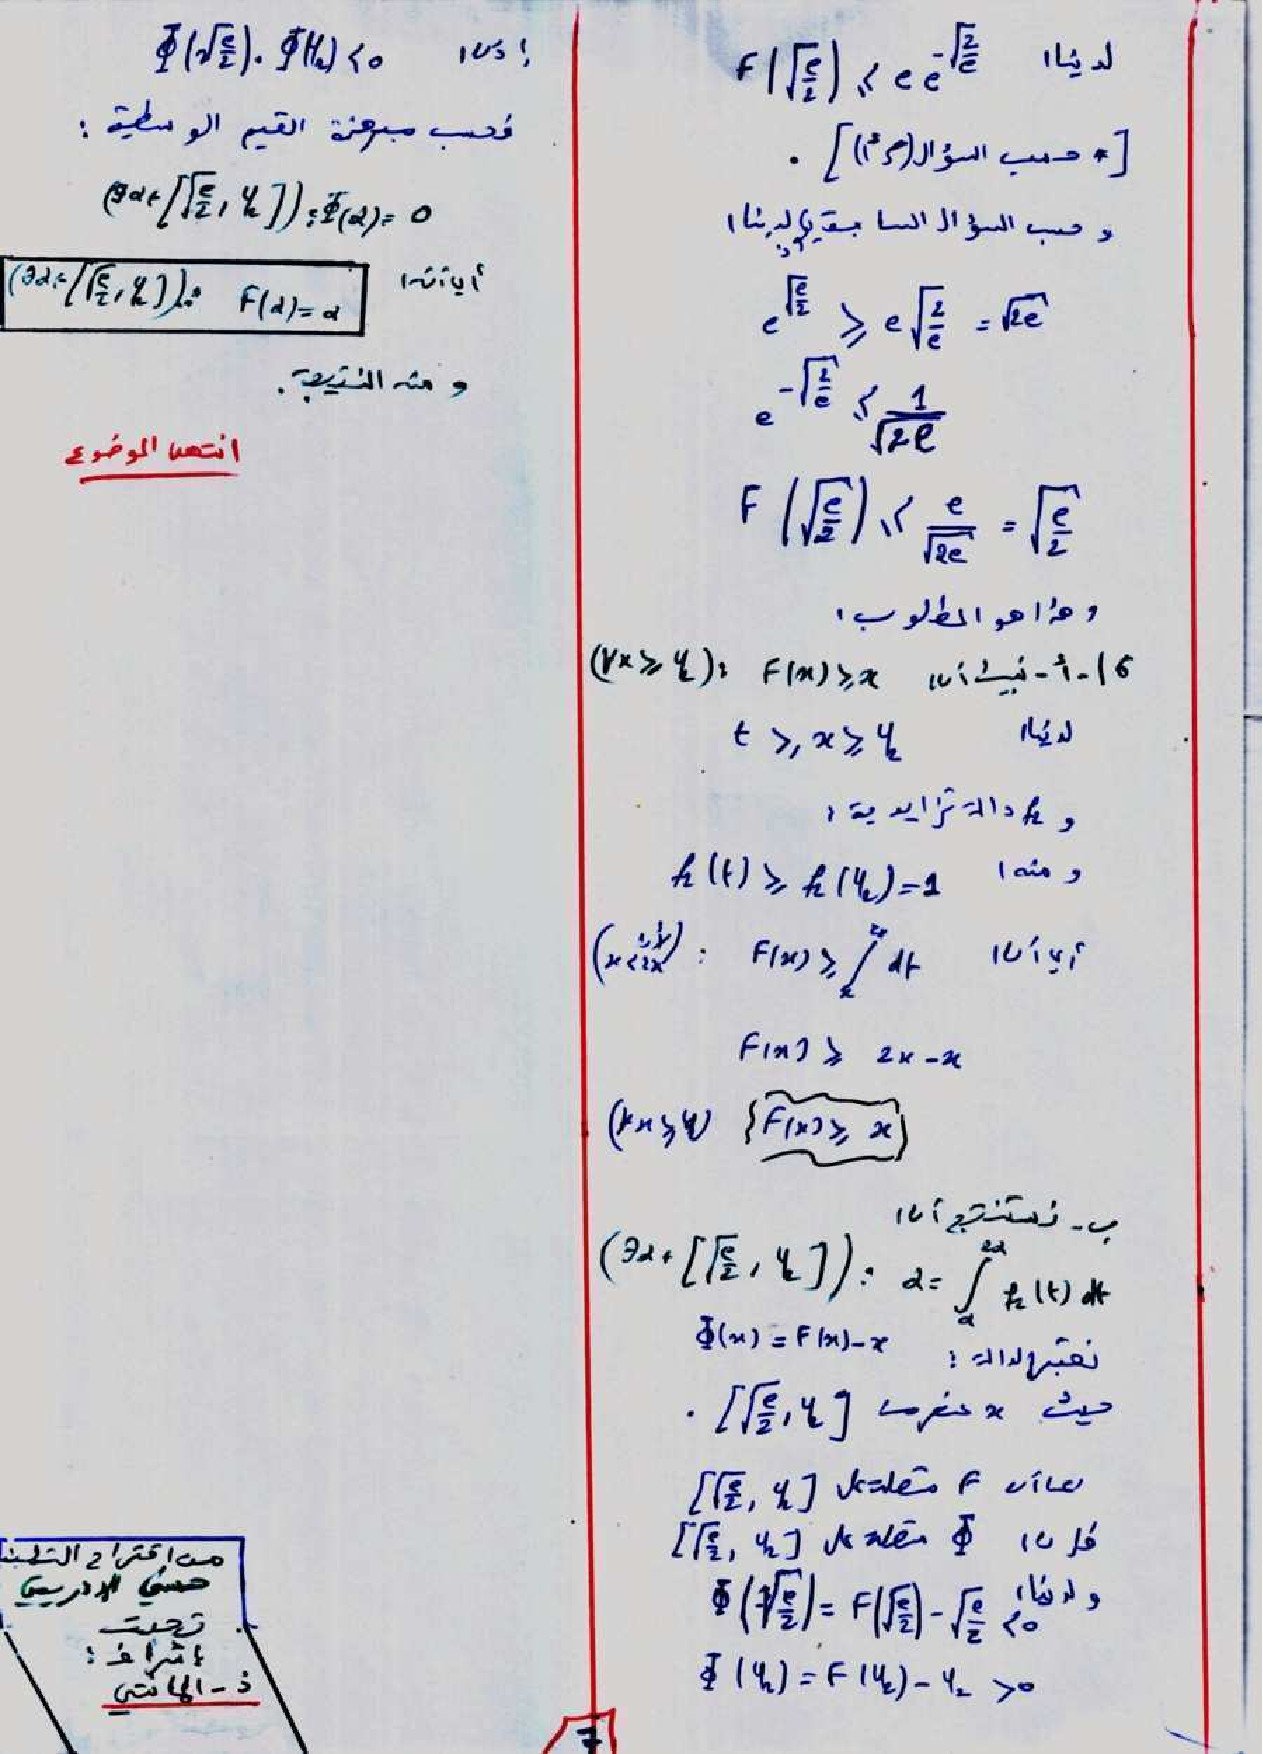 لدينا F(√(e/2)) ≤ e e^(-√(2/e))
[* حسب السؤال] .
و حسب السؤال السابق لدينا
e^(√(e/2)) ≥ e√(2/e) = √2e
e^(-√(2/e)) ≤ 1/√2e
F(√(e/2)) ≤ e/√2e = √(e/2)
وهذا هو المطلوب.
6)-أ- نبين أن (∀x ≥ 4/2): F(x) ≥ x
لدينا t ≥ x ≥ 4/2
و h دالة تزايدية :
و منه h(t) ≥ h(4/2) = 1
أي أن F(x) ≥ ∫ₓ²ˣ dt : (لأن x < 2x)
F(x) ≥ 2x - x
F(x) ≥ x
ب- نستنتج أن
(∃α ∈ [√(e/2), 4/2]): α = ∫ h(t) dt
نعتبر الدالة : Φ(x) = F(x) - x
حيث x عنصر من [√(e/2), 4/2] .
بما أن F متصلة على [√(e/2), 4/2]
فإن Φ متصلة على [√(e/2), 4/2]
و لدينا Φ(√(e/2)) = F(√(e/2)) - √(e/2) ≤ 0
Φ(4/2) = F(4/2) - 4/2 ≥ 0
إذن Φ(√(e/2)). Φ(4/2) ≤ 0
فحسب مبرهنة القيم الوسطية :
(∃α ∈ [√(e/2), 4/2]): Φ(α) = 0
أي أنه (∃α ∈ [√(e/2), 4/2]): F(α) = α
و منه النتيجة .
انتهى الموضوع
من اقتراح التلميذ
حسني الإدريسي
تحت
إشراف :
ذ-
7